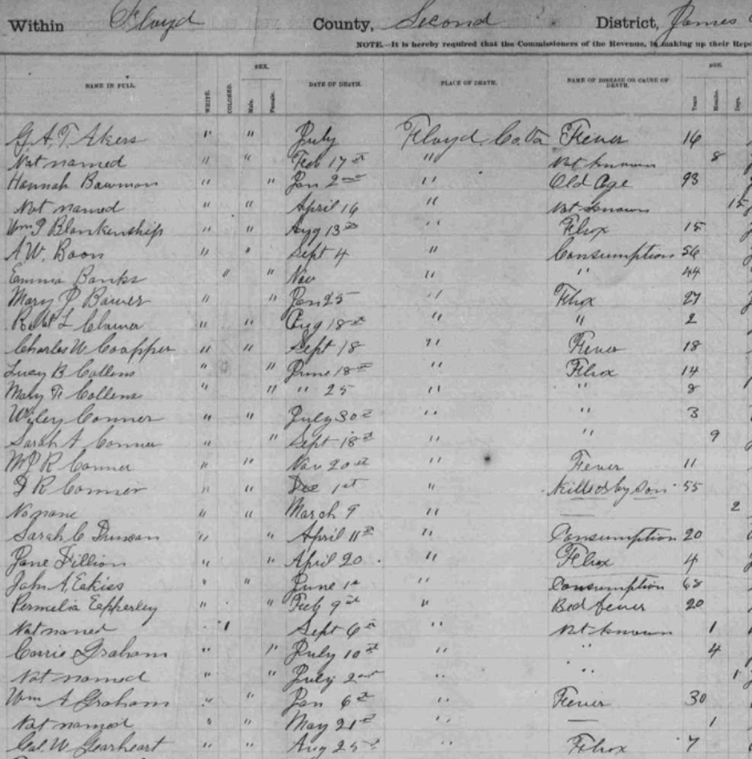 Within Floyd County, Second District, James
NOTE.—It is hereby required that the Commissioners of the Revenue, in making up their Repo
NAME IN FULL. WHITE. COLORED. SEX. Male. Female. DATE OF DEATH. PLACE OF DEATH. NAME OF DISEASE OR CAUSE OF DEATH. AGE. Years Months. Days.
G. A. T. Akers " " July Floyd Fever 16
Not named " " Feb 17 " Not known 8
Hannah Bowman " " Jan 2nd " Old Age 93
Not named " " April 16 " Not known 15
Wm P Blankenship " " Aug 13 " Flux 15
A. W. Boon " " Sept 4 " Consumption 56
Emma Banks " " Nov " " 44
Mary P Bower " " Jan 25 " Flux 27
L Clower " " Aug 18 " " 2
Charles W " " Sept 18 " Fever 18
Lucy B Collens " " June 18 " Flux 14
Mary Collens " " " 25 " " 8
Wiley Conner " " July 30 " " 3
Sarah A Conner " " Sept 18 " " 9
R Conner " " Nov 20 " Fever 11
R Conner " " Dec 1st " Killed by Son 55
No name " " March 9 " — 2
Sarah C Duncan " " April 11 " Consumption 20
Jane Fillion " " April 20 " Flux 4
John A " " June 1 " Consumption 68
Permelia Epperley " " Feb 9 " fever 20
Not named " ' Sept 6 " Not known 1
Carrie Graham " " July 10 " " 4
Not named " " July 2nd " " 1
Wm A Graham " " Jan 6 " Fever 30
Not named " " May 21 " — 1
Geo. W Gearheart " " Aug 25 " Flux 7